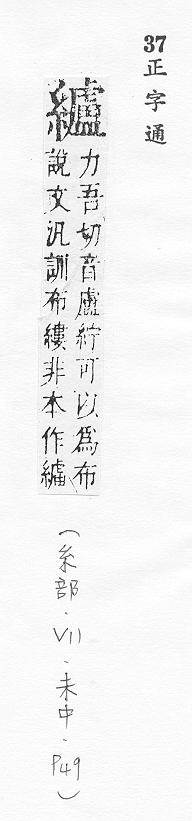 37正字通
纑
力吾切音盧紵可以爲布
說文汎訓布縷非本作纑
(糸部.VII.未中.P49)